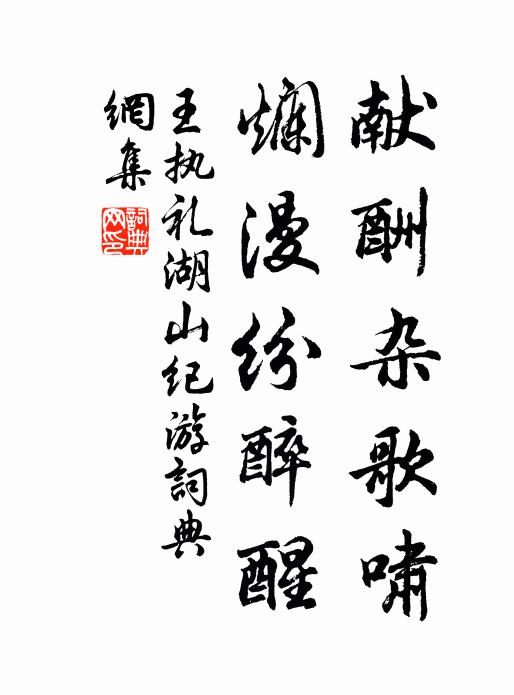 献酬杂歌啸
爛漫纷醉醒
王执礼湖山纪游詞典
網集
詞典
网印